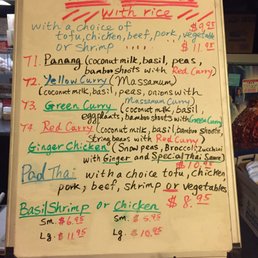 with rice
with a choice of $9.95
tofu, chicken, beef, pork, vegetable
or Shrimp $11.95
T1. Panang (coconut milk, basil, peas,
bamboo shoots with Red Curry)
T2. Yellow Curry (Massamum)
(coconut milk, basil, peas, onions with
Massamum Curry)
T3. Green Curry (coconut milk, basil,
eggplants, bamboo shoots with Green Curry)
T4. Red Curry (coconut milk, basil, bamboo shoots,
string beans with Red Curry)
Ginger Chicken (Snow peas, Broccoli, Zucchini
with Ginger and Special Thai Sauce
$10.95
Pad Thai with a choice tofu, chicken
pork, beef, shrimp or vegetables
$8.95
Basil Shrimp or Chicken
Sm. $6.95 Sm. $5.95
Lg. $11.95 Lg. $10.95